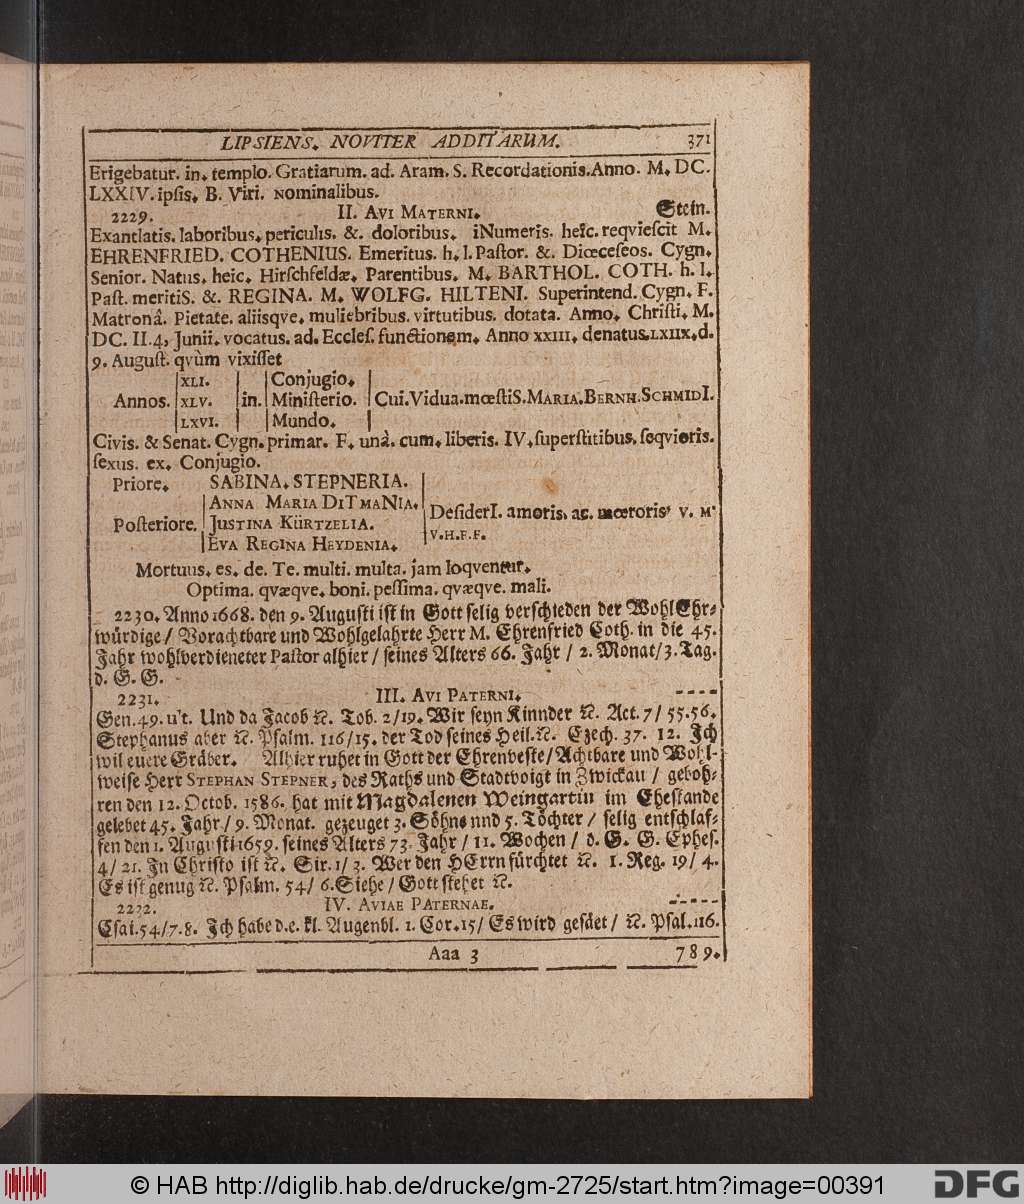 LIPSIENS. NOVITER ADDITARUM. 371
Erigebatur. in. templo. Gratiarum. ad. Aram. S. Recordationis. Anno. M. DC.
LXXIV. ipſis. B. Viri. NOMINALIBUS.
2229. II. AVI MATERNI. Stein.
Exantlatis. laboribus. periculis. &. doloribus. iNumeris. heic. reqvieſcit M.
EHRENFRIED. COTHENIUS. Emeritus. h. l. Paſtor. &. Diœceſeos. Cygn.
Senior. Natus. heic. Hirſchfeldæ. Parentibus. M. BARTHOL. COTH. h. l.
Paſt. meritiS. &. REGINA. M. WOLFG. HILTENI. Superintend. Cygn. F.
Matronâ. Pietate. aliisqve. muliebribus. virtutibus. dotata. Anno. Chriſti. M.
DC. II. 4, Junii. vocatus. ad. Eccleſ. functionem. Anno XXIII. denatus. LXIIX. d.
9. Auguſt. qvùm vixiſſet
Annos. XLI. in. Conjugio.
XLV. Miniſterio. Cui. Vidua. mœſtiS. MARIA. BERNH. SCHMIDI.
LXVI. Mundo.
Civis. & Senat. Cygn. primar. F. unà. cum. liberis. IV. ſuperſtitibus. ſeqvioris.
ſexus. ex. Conjugio.
Priore. SABINA. STEPNERIA.
Poſteriore. ANNA MARIA DITMANIA.
JUSTINA KÜRTZELIA. DeſiderI. amoris. ac. mœroris. V. M.
EVA REGINA HEYDENIA. V. H. F. F.
Mortuus. es. de. Te. multi. multa. jam loqventur.
Optima. qvæqve. boni. peſſima. qvæqve. mali.
2230. Anno 1668. den 9. Auguſti iſt in Gott ſelig verſchieden der WohlEhr-
würdige / Vorachtbare und Wohlgelahrte Herr M. Ehrenfried Coth. in die 45.
Jahr wohlverdieneter Paſtor alhier / ſeines Alters 66. Jahr / 2. Monat / 3. Tag.
d. G. G.
2231. III. AVI PATERNI. ----
Gen. 49. ult. Und da Jacob ꝛc. Tob. 2/19. Wir ſeyn Kinnder ꝛc. Act. 7/ 55. 56.
Stephanus aber ꝛc. Pſalm. 116/15. der Tod ſeines Heil. ꝛc. Ezech. 37. 12. Ich
wil euere Gräber. Alhier ruhet in Gott der Ehrenveſte / Achtbare und Wohl-
weiſe Herr STEPHAN STEPNER, des Raths und Stadtvoigt in Zwickau / geboh-
ren den 12. Octob. 1586. hat mit Magdalenen Weingartin im Eheſtande
gelebet 45. Jahr / 9. Monat. gezeuget 3. Söhne nnd 5. Töchter / ſelig entſchlaf-
fen den 1. Auguſti 1659. ſeines Alters 73. Jahr / 11. Wochen / d. G. G. Epheſ.
4/ 21. In Chriſto iſt ꝛc. Sir. 1/ 3. Wer den HErrn fürchtet ꝛc. 1. Reg. 19/ 4.
Es iſt genug ꝛc. Pſalm. 54/ 6. Siehe / Gott ſtehet ꝛc.
2232. IV. AVIAE PATERNAE. -----
Eſai. 54/7. 8. Ich habe d. e. kl. Augenbl. 1. Cor. 15/ Es wird geſäet / ꝛc. Pſal. 116.
Aaa 3 789.
© HAB http://diglib.hab.de/drucke/gm-2725/start.htm?image=00391
DFG